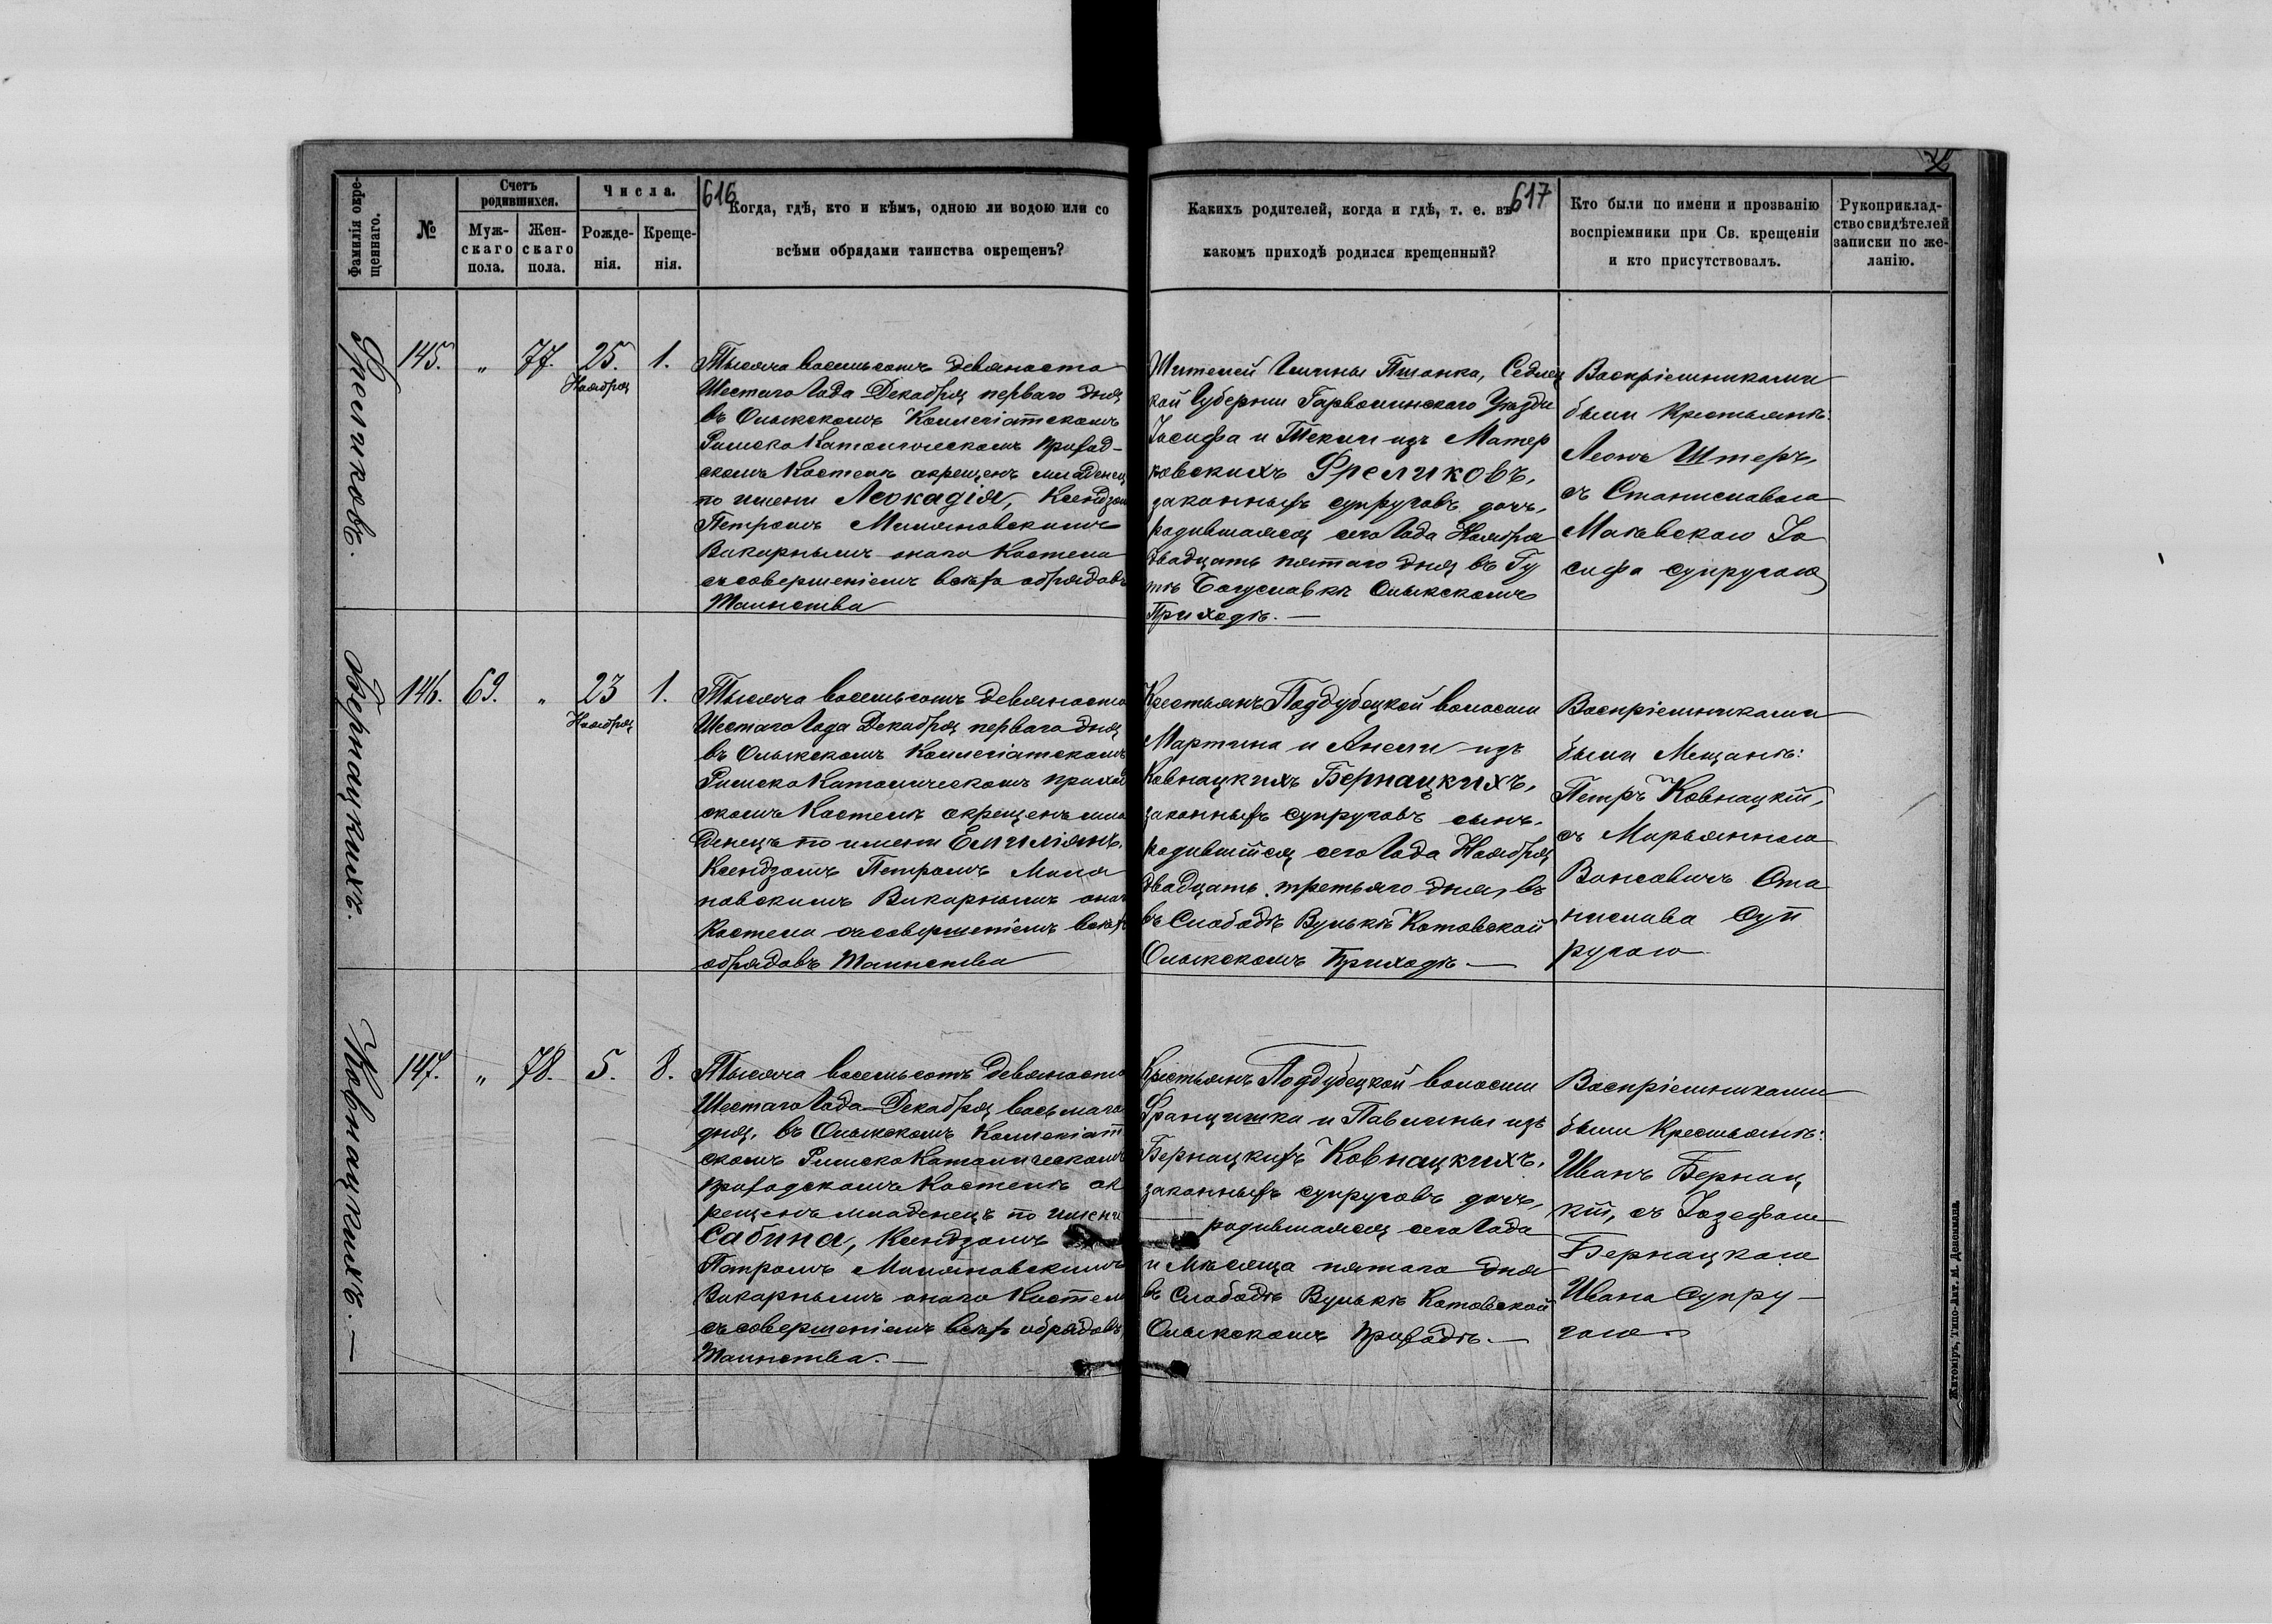 616
617
Фамилія окрещеннаго.
№
Счетъ родившихся.
Мужскаго пола.
Женскаго пола.
Числа.
Рожденія.
Крещенія.
Когда, гдѣ, кто и кѣмъ, одною ли водою или со
всѣми обрядами таинства окрещенъ?
Какихъ родителей, когда и гдѣ, т. е. въ
какомъ приходѣ родился крещенный?
Кто были по имени и прозванію
воспріемники при Св. крещеніи
и кто присутствовалъ.
Рукоприклад-
ство свидѣтелей
записки по же-
ланію.
Фреликовъ.
145.
"
77.
25.
Ноября
1.
Тысяча восемьсотъ девяносто
Шестаго Года Декабря перваго дня
въ Олыкскомъ Коллегіатскомъ
Римско Католическомъ Приход-
скомъ Костелѣ окрещенъ младенец
по имени Леокадія, Ксендзом
Петромъ Миляновскимъ
Викарнымъ онаго Костела
съ совершеніемъ всѣхъ обрядовъ
Таинства
Жителей Гмины Пшонка, Седлец
кой Губерніи Гарволинскаго Уѣзда
Іосифа и Текли изъ Матер
ковскихъ Фреликовъ,
законныхъ супруговъ дочь,
родившаяся сего Года Ноября
двадцать пятаго дня въ Гу
тѣ Богуславкѣ Олыкскомъ
Приходѣ. —
Воспріемниками
были Крестьянѣ:
Леонъ Штеръ,
съ Станиславою
Маковскою Іо
сифа супругою
Бернацкихъ.
146.
69.
"
23
Ноября
1.
Тысяча восемьсотъ девяносто
Шестаго Года Декабря перваго дня
въ Олыкскомъ Коллегіатскомъ
Римско Католическомъ приход
скомъ Костелѣ окрещенъ мла
денецъ по имени Емиліянъ,
Ксендзомъ Петромъ Миля
новскимъ Викарнымъ онаго
Костела съ совершеніемъ всѣхъ
обрядовъ Таинства
Крестьянъ Поддубецкой волости
Мартина и Анели изъ
Ковнацкихъ Бернацкихъ,
законныхъ супруговъ сынъ,
родившійся сего Года Ноября
двадцать третьяго дня, въ
въ Слободѣ Вулькѣ Котовской
Олыкскомъ Приходѣ —
Воспріемниками
были Мещанѣ:
Петръ Ковнацкій,
съ Марьянною
Вансовичъ Ста
нислава Суп
ругою
Ковнацкихъ. —
147.
"
78.
5.
8.
Тысяча восемьсотъ девяносто
Шестаго Года Декабря восьмаго
дня, въ Олыкскомъ Коллегіат
скомъ Римско Католическомъ
приходскомъ Костелѣ ок
рещенъ младенецъ по имени
Сабина, Ксендзомъ
Петромъ Миляновскимъ
Викарнымъ онаго Костела
съ совершеніемъ всѣхъ обрядовъ
Таинства. —
Крестьянъ Поддубецкой волости
Францишка и Павлины изъ
Бернацкихъ Ковнацкихъ,
законныхъ супруговъ дочь,
родившаяся сего Года
и Мѣсяца пятаго дня
въ Слободѣ Вулькѣ Котовской
Олыкскомъ Приходѣ. —
Воспріемниками
были Крестьянѣ:
Иванъ Бернац
кій, съ Іозефою
Бернацкою
Ивана Супру —
гою.
Житоміръ, Типо-Лит. М. Дененмана.